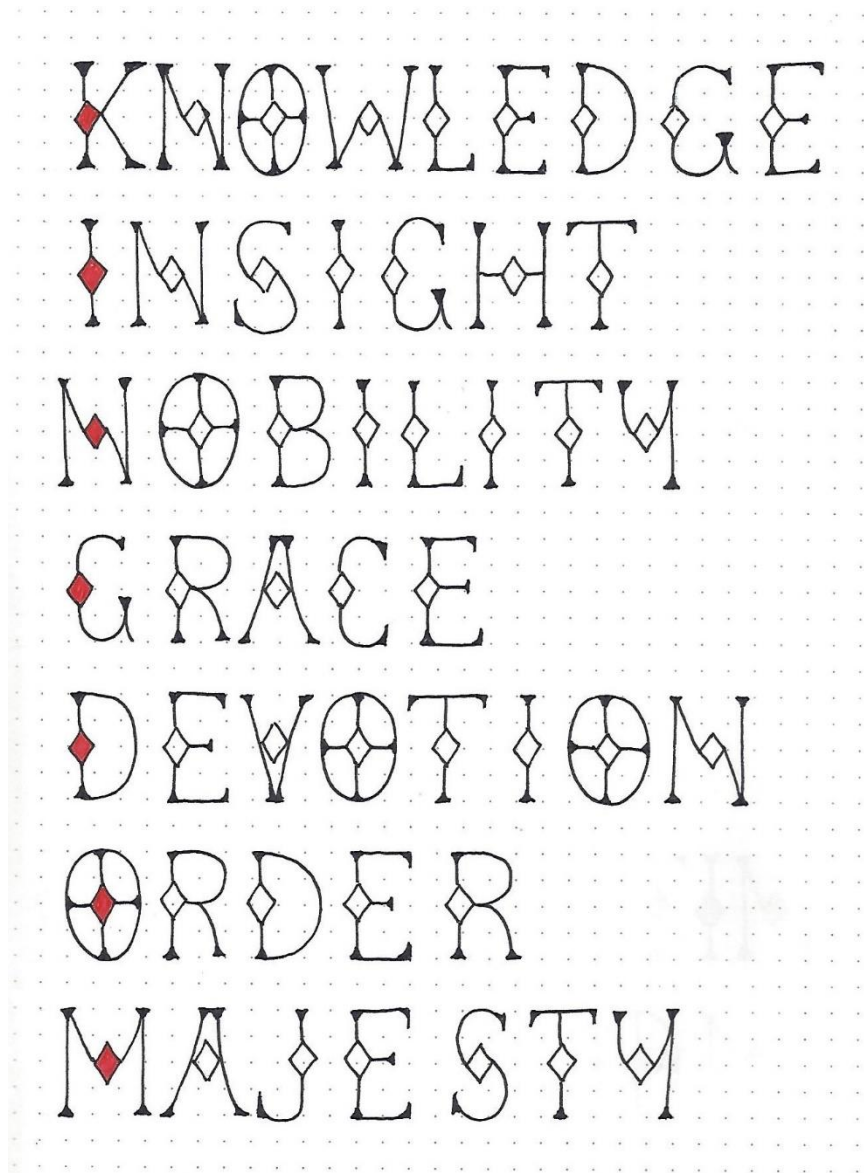 KNOWLEDGE
INSIGHT
NOBILITY
GRACE
DEVOTION
ORDER
MAJESTY